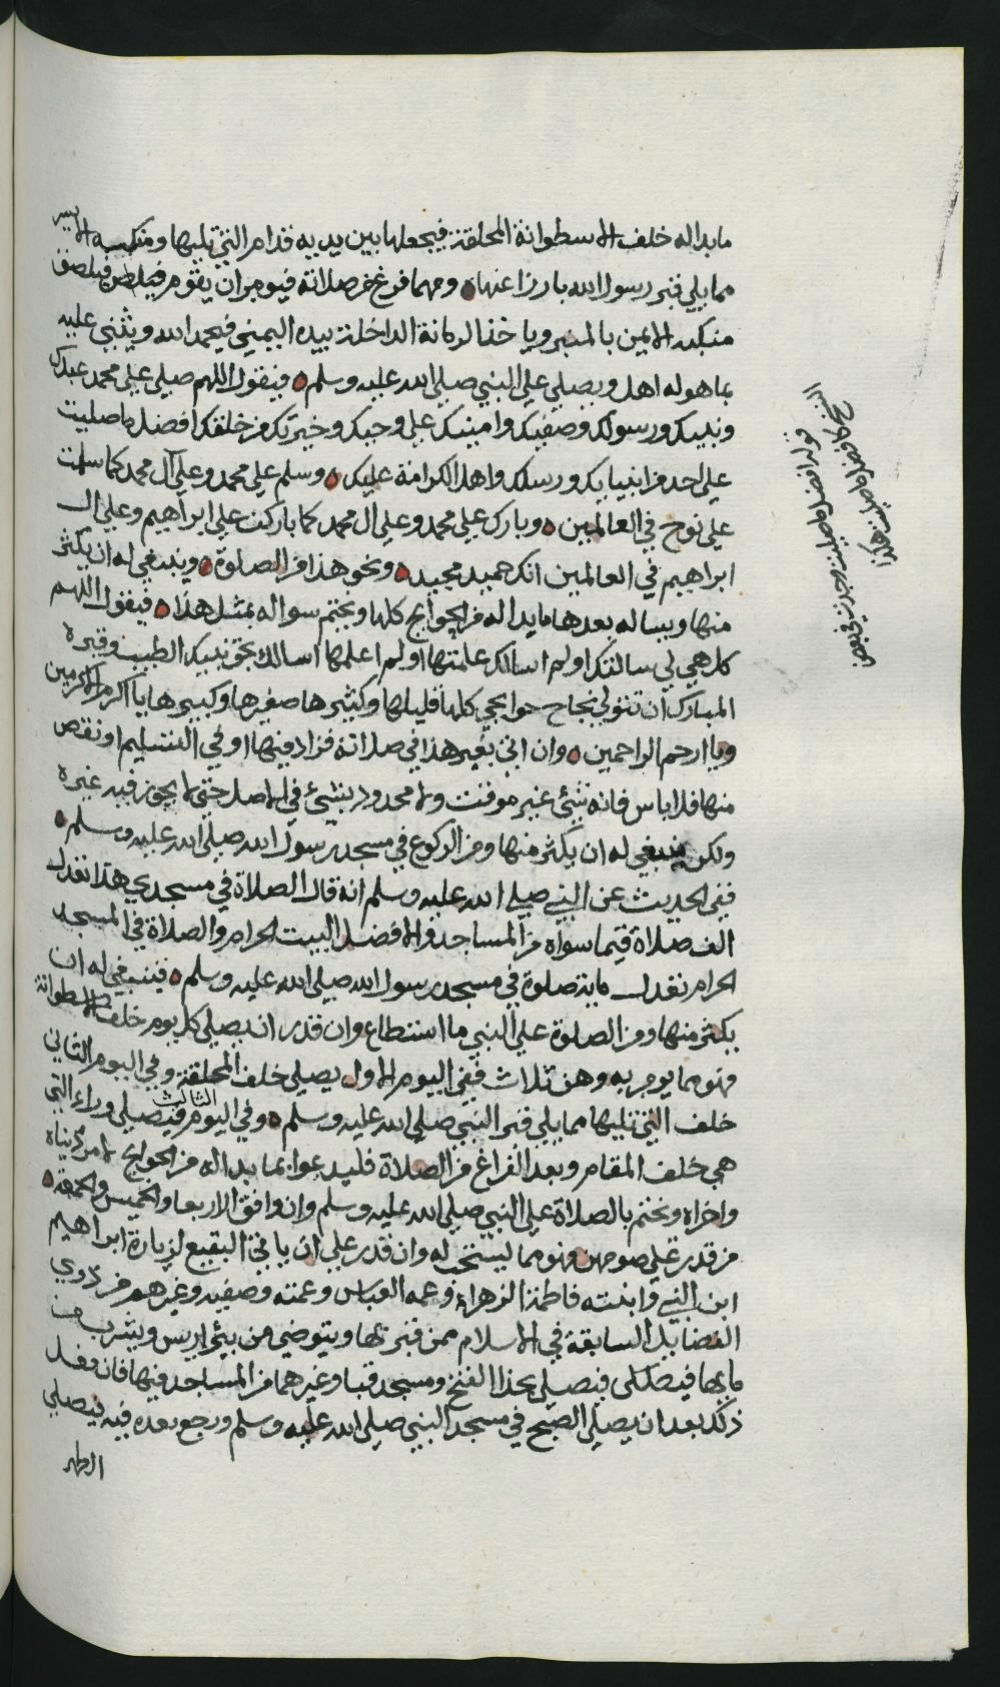 ما بدا له خلف الاسطوانة المخلقة فيجعلها بين يديه قدام التي تليها ومنكبه الايسر
مما يلي قبر رسول الله بارزا عنها ومهما فرغ من صلاته فيومر ان يقوم فيلصق
منكبه الايمن بالمنبر وياخذ الرمانة الداخلة بيده اليمني فيحمد الله ويثني عليه
بما هو له اهل ويصلي علي النبي صلي الله عليه وسلم فيقول اللهم صلي علي محمد عبدك
ونبيك ورسولك وصفيك وامينك علي وحيك وخيرتك من خلقك افضل ما صليت
علي احد من انبيايك ورسلك واهل الكرامة عليك وسلم علي محمد وعلي آل محمد كما سلمت
علي نوح في العالمين وبارك علي محمد وعلي ال محمد كما باركت علي ابراهيم وعلي ال
ابراهيم في العالمين انك حميد مجيد ونحو هذا من الصلوة وينبغي له ان يكثر
منها ويساله بعدها ما بدا له من الحوايج كلها ويختم سواله بمثل هذا فيقول اللهم
كل هي لي سالتك او لم اسالك علمتها او لم اعلمها اسالك بحق نبيك الطيب وقبره
المبارك ان تتولي نجاح حوايجي كلها قليلها وكثيرها صغيرها وكبيرها يا اكرم الاكرمين
ويا ارحم الراحمين وان اتي بغير هذا في صلاته فزاد فيها او في التسليم او نقص
منها فلا باس فانه شئ غير موقت ولا محدود بشئ في الاصل حتي لا يجوز فيه غيره
ولكن ينبغي له ان يكثر منها ومن الركوع في مسجد رسول الله صلي الله عليه وسلم
ففي الحديث عن النبي صلي الله عليه وسلم انه قال الصلاة في مسجدي هذا تعدل
الف صلاة فيما سواه من المساجد والافضل البيت الحرام والصلاة في المسجد
الحرام تعدل ماية صلوة في مسجد رسول الله صلي الله عليه وسلم فينبغي له ان
يكثر منها ومن الصلوة علي النبي ما استطاع وان قدر ان يصلي كل يوم خلف الاسطوانة
فهو مما يومر به وهن ثلاث ففي اليوم الاول يصلي خلف المخلقة وفي اليوم الثاني
خلف التي تليها مما يلي قبر النبي صلي الله عليه وسلم وفي اليوم الثالث فيصلي وراء التي
هي خلف المقام وبعد الفراغ من الصلاة فليدعوا بما بدا له من الحوايج لامر دنياه
واخراه ويختم بالصلاة علي النبي صلي الله عليه وسلم وان وافق الاربعا والخميس والجمعة
من قدر علي صومهن فهو مما يستحب له وان قدر علي ان ياتي البقيع لزيارة ابراهيم
ابن النبي وابنته فاطمة الزهراء وعمه العباس وعمته وصفيه وغيرهم من ذوي
الفضايل السابقة في الاسلام ممن قبر بها ويتوضي من بئر اريس ويشرب من
مايها فيصلي بحذا الفتح ومسجد قبا وغيرهما من المساجد فيها فان فعل
ذلك بعد ان يصلي الصبح في مسجد النبي صلي الله عليه وسلم ورجع بعده فيه فيصلي
الظهر
قوله افضل ما صليت وجدت في بعض
النسخ كافضل ما صليت هكذا